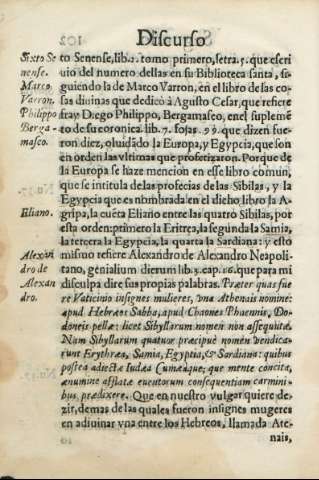 102
Discurso
Sixto Se
nense.
Marco
Varron.
Philippo
Berga-
masco.
Eliano.
Alexan
dro de
Alexan
dro.
to Senense, lib. 2. tomo primero, letra. s. que escri
uio del numero dellas en su Biblioteca santa, si-
guiendo la de Marco Varron, en el libro de las co-
sas diuinas que dedicò à Agusto Cesar, que refiere
fray Diego Philippo, Bergamasco, en el suplemẽ
to de su coronica. lib. 7. fojas. 99. que dizen fue-
ron diez, oluidādo la Europa, y Egypcia, que son
en orden las vltimas que profetizaron. Porque de
la Europa se haze mencion en esse libro comun,
que se intitula de las profecias de las Sibilas, y la
Egypcia que es nōmbrada en el dicho libro la A-
gripa, la cuẽta Eliano entre las quatro Sibilas, por
esta orden: primero la Eritrea, la segunda la Samia,
la tercera la Egypcia, la quarta la Sardiana: y esto
mismo refiere Alexandro de Alexandro Neapoli-
tano, genialium dierum lib. 3. cap. 16. que para mi
disculpa dire sus propias palabras. Præter quas fue
re Vaticinio insignes mulieres, vna Athenais nomine:
apud Hebræos Sabba, apud Chaones Phaennis, Do-
doneis pellæ: licet Sibyllarum nomen non assequutæ.
Nam Sibyllarum quatuor præcipuè nomen vendica-
runt Erythræa, Samia, Egyptia, & Sardiana: quibus
postea adiecta Iudæa Cumæáque; que mente concita,
ac numine afflatæ euentorum consequentiam carmini-
bus prædixere. Que en nuestro vulgar quiere de-
zir, demas de las quales fueron insignes mugeres
en adiuinar vna entre los Hebreos, llamada Ate-
nais,